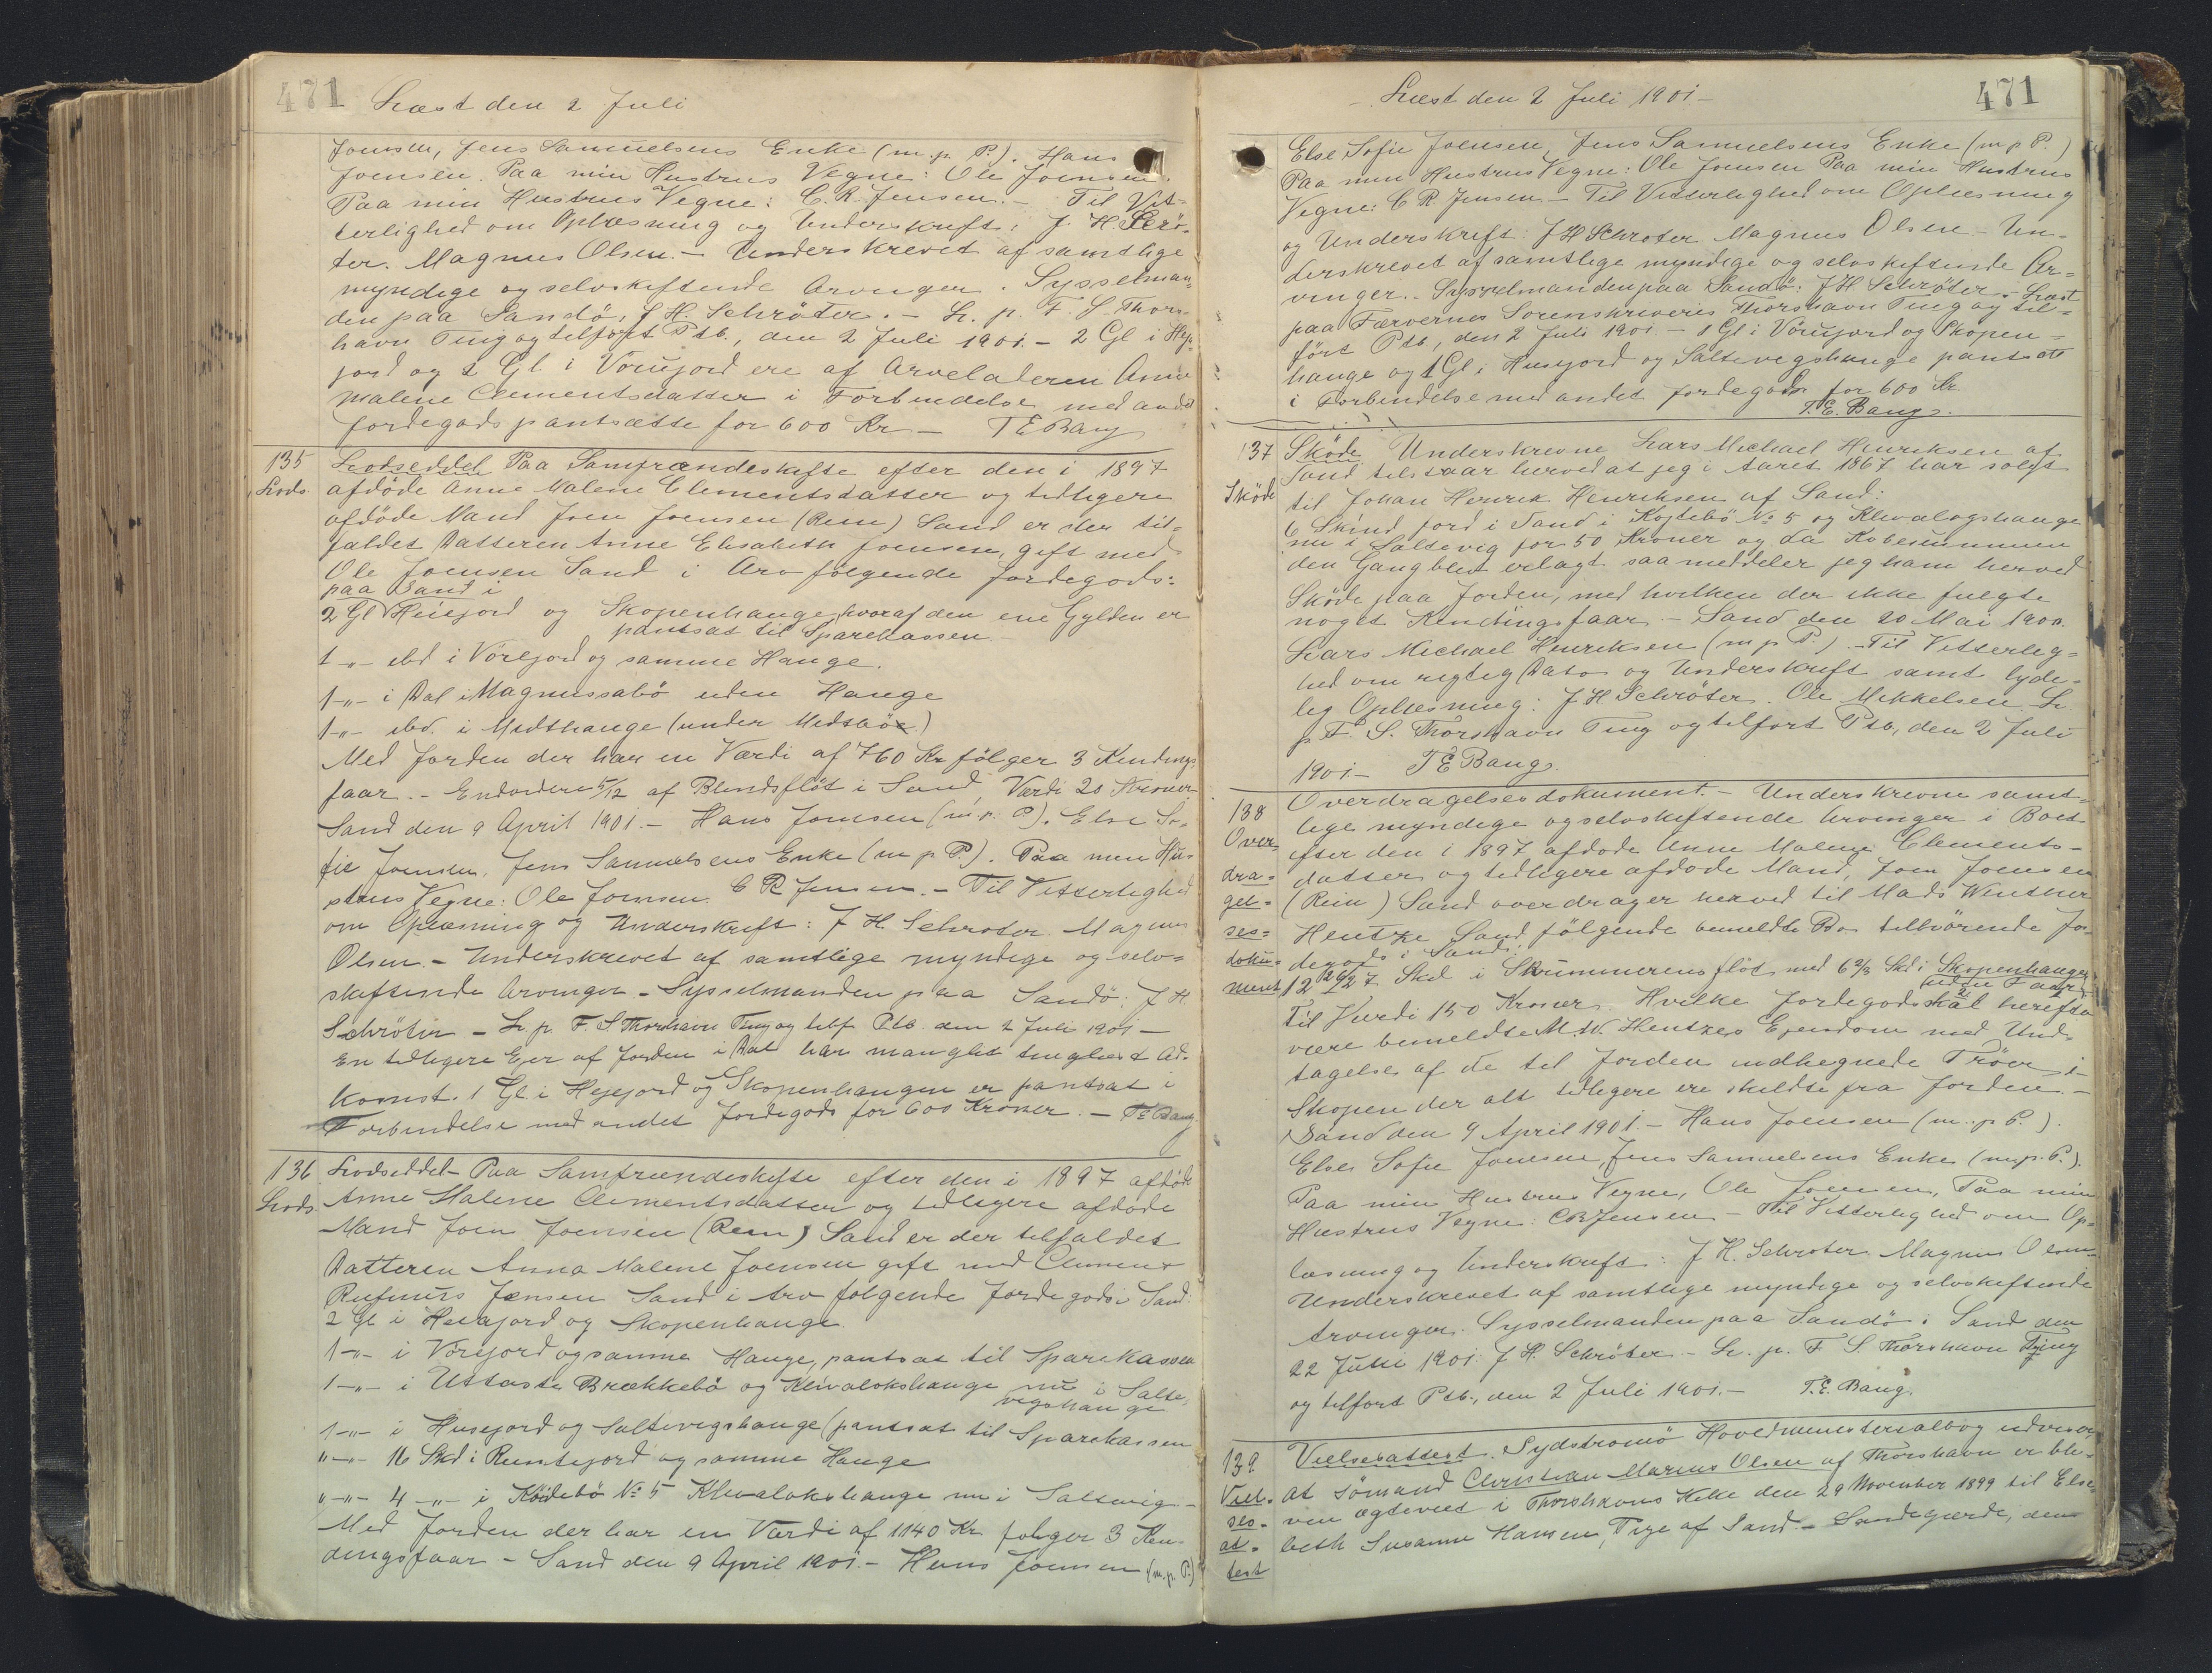 471 Læst den 2 Juli
Joensen, Jens Samuelsens Enke (m. p. P.). Hans
Joensen. Paa min Hustrus Vegne: Ole Joensen.
Paa min Hustrus Vegne: C. R. Jensen. – Til Vit-
terlighed om Oplæsning og Underskrift: J. H. Scrö-
ter. Magnus Olsen. – Underskrevet af samtlige
myndige og selvskiftende Arvinger. Sysselman-
den paa Sandö: J H. Schröter. – L. p. F. S. Thors-
havn Ting og tilfört Ptb., den 2 Juli 1901. – 2 Gl i Heje-
jord og 1 Gl i Vörujord ere af Arveladeren Anne
Malene Clementsdatter i Forbindelse med andet
Jordegods pantsatte for 600 Kr – T E Bang
135 Lodseddel Paa Samfrændeskifte efter den i 1897
Lods. afdöde Anne Malene Clementsdatter og tidligere
afdöde Mand Joen Joensen (Rein) Sand er der til-
faldet Datteren Anne Elisabeth Joensen, gift med
Ole Joensen Sand i Arv fölgende Jordegods:
paa Sand i
2 Gl Heiejord og Skopenhauge, hvoraf den ene Gylden er
pantsat til Sparekassen. –
1 -"- ibd i Vörejord og samme Hauge.
1 -"- i Dal i Magnussabö uden Hauge
1 -"- ibd. i Midthauge (under Midtbö)
Med Jorden der har en Værdi af 760 Kr fölger 3 Kendings-
faar. – Endvidere 5/12 af Blindsflöt i Sand Værdi 20 Kroner
Sand den 9 April 1901. – Hans Joensen (m. p. P). Else So-
fie Joensen, Jens Samuelsens Enke (m p P.). Paa min Hu-
strus Vegne: Ole Joensen. C R Jensen. – Til Vitterlighed
om Oplæsning og Underskrift: J H. Schröter Magnus
Olsen. – Underskrevet af samtlige myndige og selv-
skiftende Arvinger – Sysselmanden paa Sandö: J H.
Schröter – L. p. F. S. Thorshavn Ting og tilf. Ptb. den 2 Juli 1901 –
En tidligere Ejer af Jorden i Dal har manglet tinglæst Ad-
komst. 1 Gl. i Hejejord og Skopenhaugen er pantsat i
Forbindelse med andet Jordegods for 600 Kroner. – T E Bang
136 Lodseddel – Paa Samfrændeskifte efter den i 1897 afdöde
Lods. Anne Malene Clementsdatter og tidligere afdöde
Mand Joen Joensen (Rein) Sand er der tilfaldet
Datteren Anna Malene Joensen gift med Clement
Rufinus Jensen Sand i Arv fölgende Jordegods i Sand:
2 Gl i Heiejord og Skopenhauge
1 -"- i Vörejord og samme Hauge, pantsat til Sparekassen
1 -"- i Uttaste Brækkebö og Klivalokshauge nu i Salte-
vigshauge
1 -"- i Husejord og Saltevigshauge (pantsat til Sparekassen
" -"- 16 Skd i Runtejord og samme Hauge
" -"- 4 -"- i Ködebö No 5 Klivalokshauge nu i Saltevig –
Med Jorden der har en Værdi af 1140 Kr fölger 3 Ken-
dingsfaar – Sand den 9 April 1901. – Hans Joensen (m. p. P.)
– Læst den 2 Juli 1901 – 471
Else Sofie Joensen, Jens Samuelsens Enke (m p P.)
Paa min Hustrus Vegne: Ole Joensen Paa min Hustrus
Vegne: C R Jensen – Til Vitterlighed om Oplæsning
og Underskrift: J H Schröter Magnus Olsen – Un-
derskrevet af samtlige myndige og selvskiftende Ar-
vinger. – Sysselmanden paa Sandö: J H Schröter. – Læst
paa Færöernes Sorenskriveris Thorshavn Ting og til-
fört Ptb., den 2 Juli 1901 – 1 Gl i Vörujord og Skopen-
hauge og 1 Gl i Husejord og Saltevigshauge pantsatt
i Forbindelse med andet Jordegods for 600 Kr.
T. E. Bang.
137 Sköde Underskrevne Lars Michael Henriksen af
Sköde Sand tilstaar herved at jeg i Aaret 1867 har solgt
til Johan Henrik Henriksen af Sand:
6 Skind Jord i Sand i Kojtebö No 5 og Klivalogshauge
nu i Saltevig for 50 Kroner og da Købesummen
den Gang blev erlagt saa meddeler jeg ham herved
Sköde paa Jorden, med hvilken der ikke fulgte
noget Kendingsfaar. – Sand den 20 Mai 1900.
Lars Michael Henriksen (m p P.) – Til Vitterlig-
hed om rigtig Dato og Underskrift samt lyde-
lig Oplæsning: J H Schröter. Ole Mikkelsen L.
p. F. S. Thorshavn Ting og tilfört Ptb, den 2 Juli
1901 – T E Bang.
138 Overdragelsesdokument. – Underskrevne samt-
Over- lige myndige og selvskiftende Arvinger i Boet
dra- efter den i 1897 afdöde Anne Malene Clements-
gel- datter og tidligere afdöde Mand, Joen Joensen
ses- (Rein) Sand overdrager herved til Mads Winther
doku- Hentze Sand fölgende bemeldte Bo tilhörende Jor-
ment degods i Sand:
12 26/27 Skd i Skrimmerensflöt med 6 2/3 Skd i Skopenhauge,
uden Faar,
Til Værdi 150 Kroner. Hvilke Jordegods skal herefter
være bemeldte M. W. Hentzes Ejendom med Und-
tagelse af de til Jorden indhegnede Tröer i
Skopen der alt tidligere ere skildte fra Jorden. –
Sand den 9 April 1901. – Hans Joensen (m. p P.).
Else Sofie Joensen, Jens Samuelsens Enke (m. p. P.).
Paa min Hustrus Vegne, Ole Joensen, Paa min
Hustrus Vegne: C R Jensen – Til Vitterlighed om Op-
læsning og Underskrift: J H. Schröter Magnus Olsen
Underskrevet af samtlige myndige og selvskiftende
Arvinger. Sysselmanden paa Sandö: Sand den
22 Juni 1901: J H. Schröter – L. p. F. S. Thorshavn Ting
og tilfört Ptb., den 2 Juli 1901. – T. E. Bang.
139 Vielsesattest. Sydströmö Hovedministerialbog udviser,
Viel- at Sömand Christian Marius Olsen af Thorshavn er ble-
ses- ven ægteviet i Thorshavns Kirke den 29 November 1899 til Elsa-
at- beth Susanne Hansen, Pige af Sand – Sandegjerde, den
test